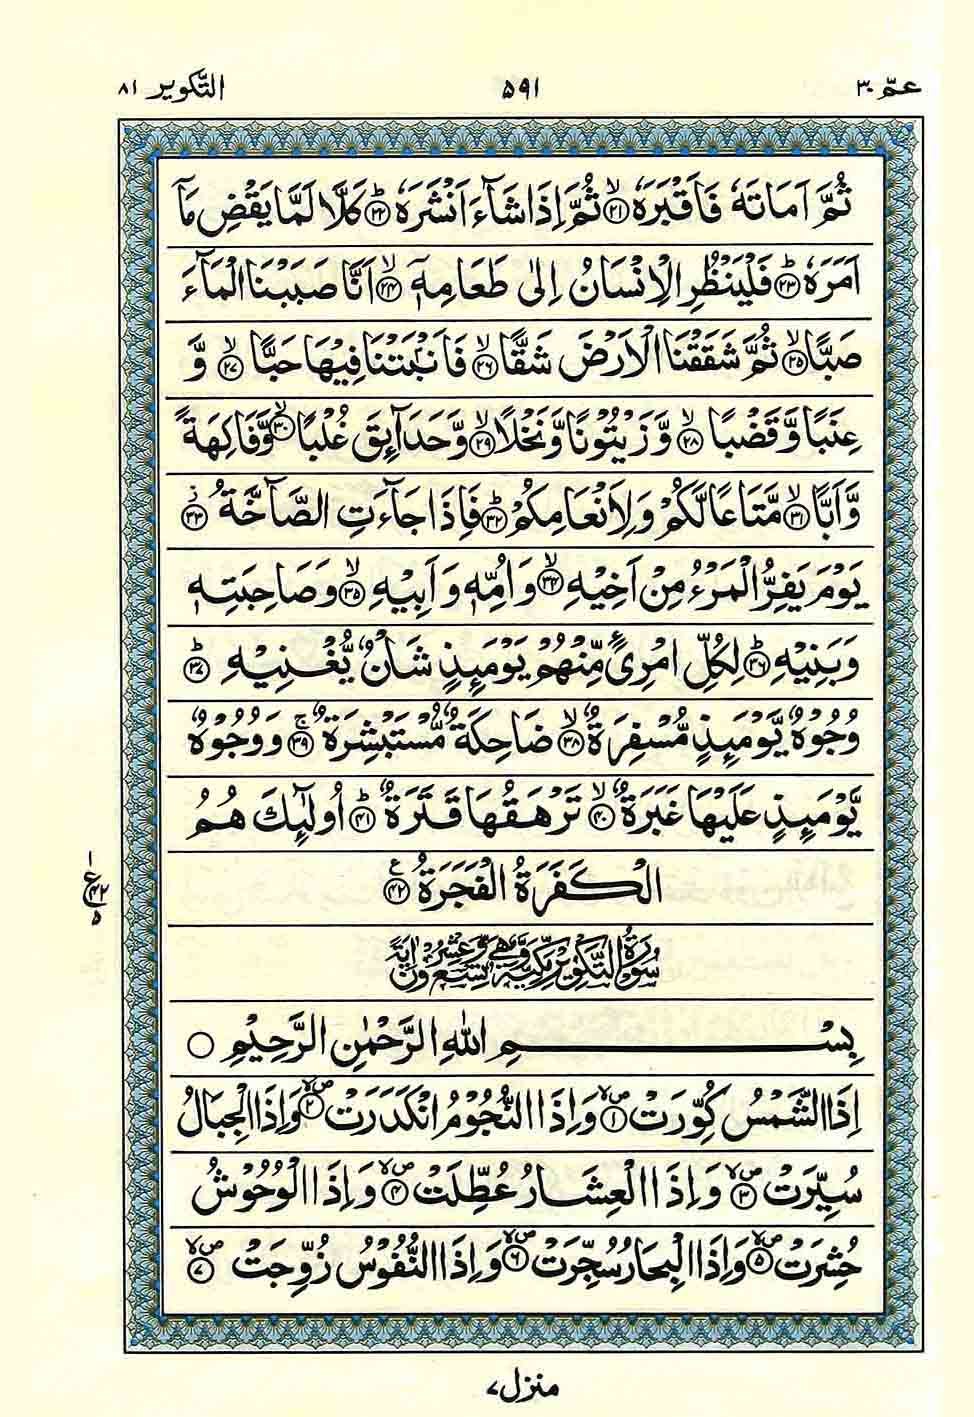 عمّ ٣٠ ٥٩١ التّكوير ٨١
ثُمَّ اَمَاتَهٗ فَاَقْبَرَهٗ ۙ‏﴿۲۱﴾ ثُمَّ اِذَا شَآءَ اَنْشَرَهٗ ؕ‏﴿۲۲﴾ كَلَّا لَمَّا يَقْضِ مَاۤ
اَمَرَهٗ ؕ‏﴿۲۳﴾ فَلْيَنْظُرِ الْاِنْسَانُ اِلٰى طَعَامِهٖۤ ۙ‏﴿۲۴﴾ اَنَّا صَبَبْنَا الْمَآءَ
صَبًّا ۙ‏﴿۲۵﴾ ثُمَّ شَقَقْنَا الْاَرْضَ شَقًّا ۙ‏﴿۲۶﴾ فَاَنْۢبَتْنَا فِيْهَا حَبًّا ۙ‏﴿۲۷﴾ وَّ
عِنَبًا وَّقَضْبًا ۙ‏﴿۲۸﴾ وَّزَيْتُوْنًا وَّنَخْلًا ۙ‏﴿۲۹﴾ وَّحَدَآئِقَ غُلْبًا ۙ‏﴿۳۰﴾ وَّفَاكِهَةً
وَّاَبًّا ۙ‏﴿۳۱﴾ مَّتَاعًا لَّكُمْ وَلِاَنْعَامِكُمْ ؕ‏﴿۳۲﴾ فَاِذَا جَآءَتِ الصَّآخَّةُ ۫‏﴿۳۳﴾
يَوْمَ يَفِرُّ الْمَرْءُ مِنْ اَخِيْهِ ۙ‏﴿۳۴﴾ وَاُمِّهٖ وَاَبِيْهِ ۙ‏﴿۳۵﴾ وَصَاحِبَتِهٖ
وَبَنِيْهِ ؕ‏﴿۳۶﴾ لِكُلِّ امْرِیًٴ مِّنْهُمْ يَوْمَئِذٍ شَاْنٌ يُّغْنِيْهِ ؕ‏﴿۳۷﴾
وُجُوْهٌ يَّوْمَئِذٍ مُّسْفِرَةٌ ۙ‏﴿۳۸﴾ ضَاحِكَةٌ مُّسْتَبْشِرَةٌ ۚ‏﴿۳۹﴾ وَوُجُوْهٌ
يَّوْمَئِذٍ عَلَيْهَا غَبَرَةٌ ۙ‏﴿۴۰﴾ تَرْهَقُهَا قَتَرَةٌ ؕ‏﴿۴۱﴾ اُولٰٓئِكَ هُمُ
الْكَفَرَةُ الْفَجَرَةُ ع﴿۴۲﴾
١ ع ۴۲ ۵
سُوْرَةُ التَّكْوِيْرِ مَكِّيَّةٌ وَّهِيَ تِسْعٌ وَّعِشْرُوْنَ اٰيَةً
بِسْمِ اللّٰهِ الرَّحْمٰنِ الرَّحِيْمِ ○
اِذَا الشَّمْسُ كُوِّرَتْ ۙ‏ص﴿۱﴾ وَاِذَا النُّجُوْمُ انْكَدَرَتْ ۙ‏ص﴿۲﴾ وَاِذَا الْجِبَالُ
سُيِّرَتْ ۙ‏ص﴿۳﴾ وَاِذَا الْعِشَارُ عُطِّلَتْ ۙ‏ص﴿۴﴾ وَاِذَا الْوُحُوْشُ
حُشِرَتْ ۙ‏ص﴿۵﴾ وَاِذَا الْبِحَارُ سُجِّرَتْ ۙ‏ص﴿۶﴾ وَاِذَا النُّفُوْسُ زُوِّجَتْ ۙ‏ص﴿۷﴾
منزل ٧